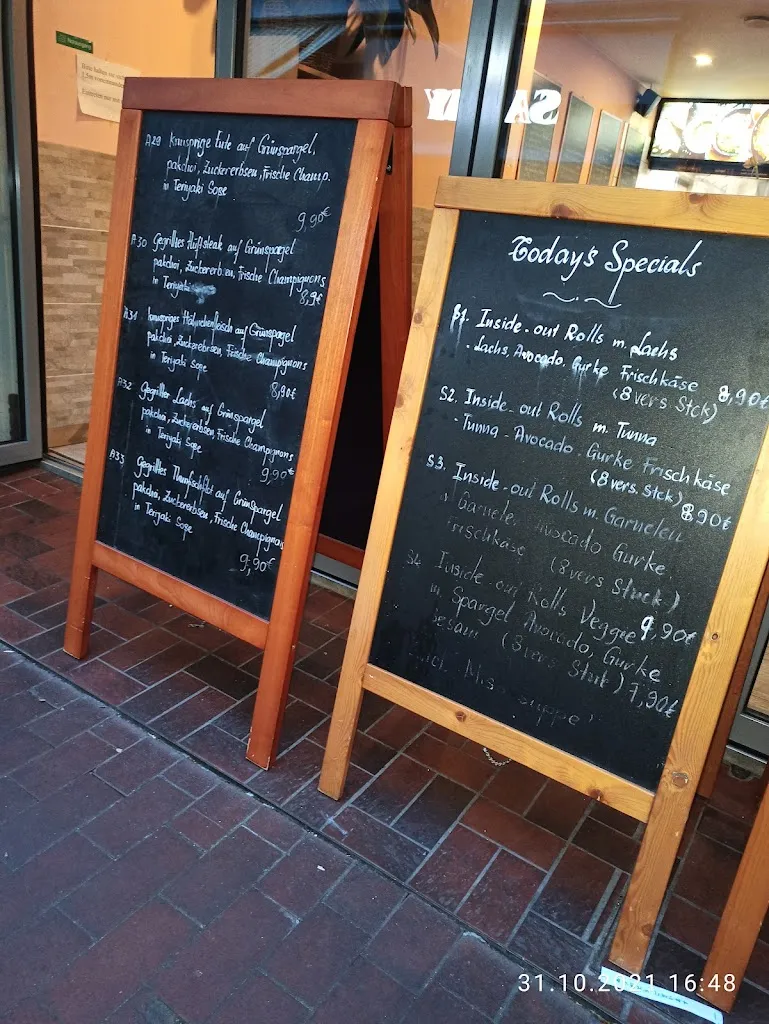 A29 knusprige Ente auf Grünspargel,
pakchoi, Zuckererbsen, frische Champ.
in Teriyaki Soße
9,90€
A30 Gegrilltes Hüftsteak auf Grünspargel
pakchoi, Zuckererbsen, frische Champignons
in Teriyaki
8,9€
A31 knuspriges Hähnchenfleisch auf Grünspargel
pakchoi, Zuckererbsen Frische Champignons
in Teriyaki Soße
8,90€
A32 Gegrillter Lachs auf Grünspargel
pakchoi, Zuckererbsen Frische Champignons
in Teriyaki Soße
9,90€
A33 Gegrilltes Thunfischfilet auf Grünspargel
pakchoi, Zuckererbsen, Frische Champignons
in Teriyaki Soße
9,90€
Today's Specials
S1. Inside-out Rolls m. Lachs
- Lachs, Avocado, Gurke Frischkäse 8,90€
(8 vers. Stck)
S2. Inside-out Rolls m. Tunna
- Tunna - Avocado - Gurke Frischkäse
(8 vers. Stck) 8,90€
S3. Inside-out Rolls m. Garnelen
Garnelen Avocado Gurke
Frischkäse (8 vers Stück)
9,90€
S4 Inside-out Rolls Veggie
m. Spargel Avocado, Gurke
Sesam (8 vers Stck) 7,90€
31.10.2021 16:48